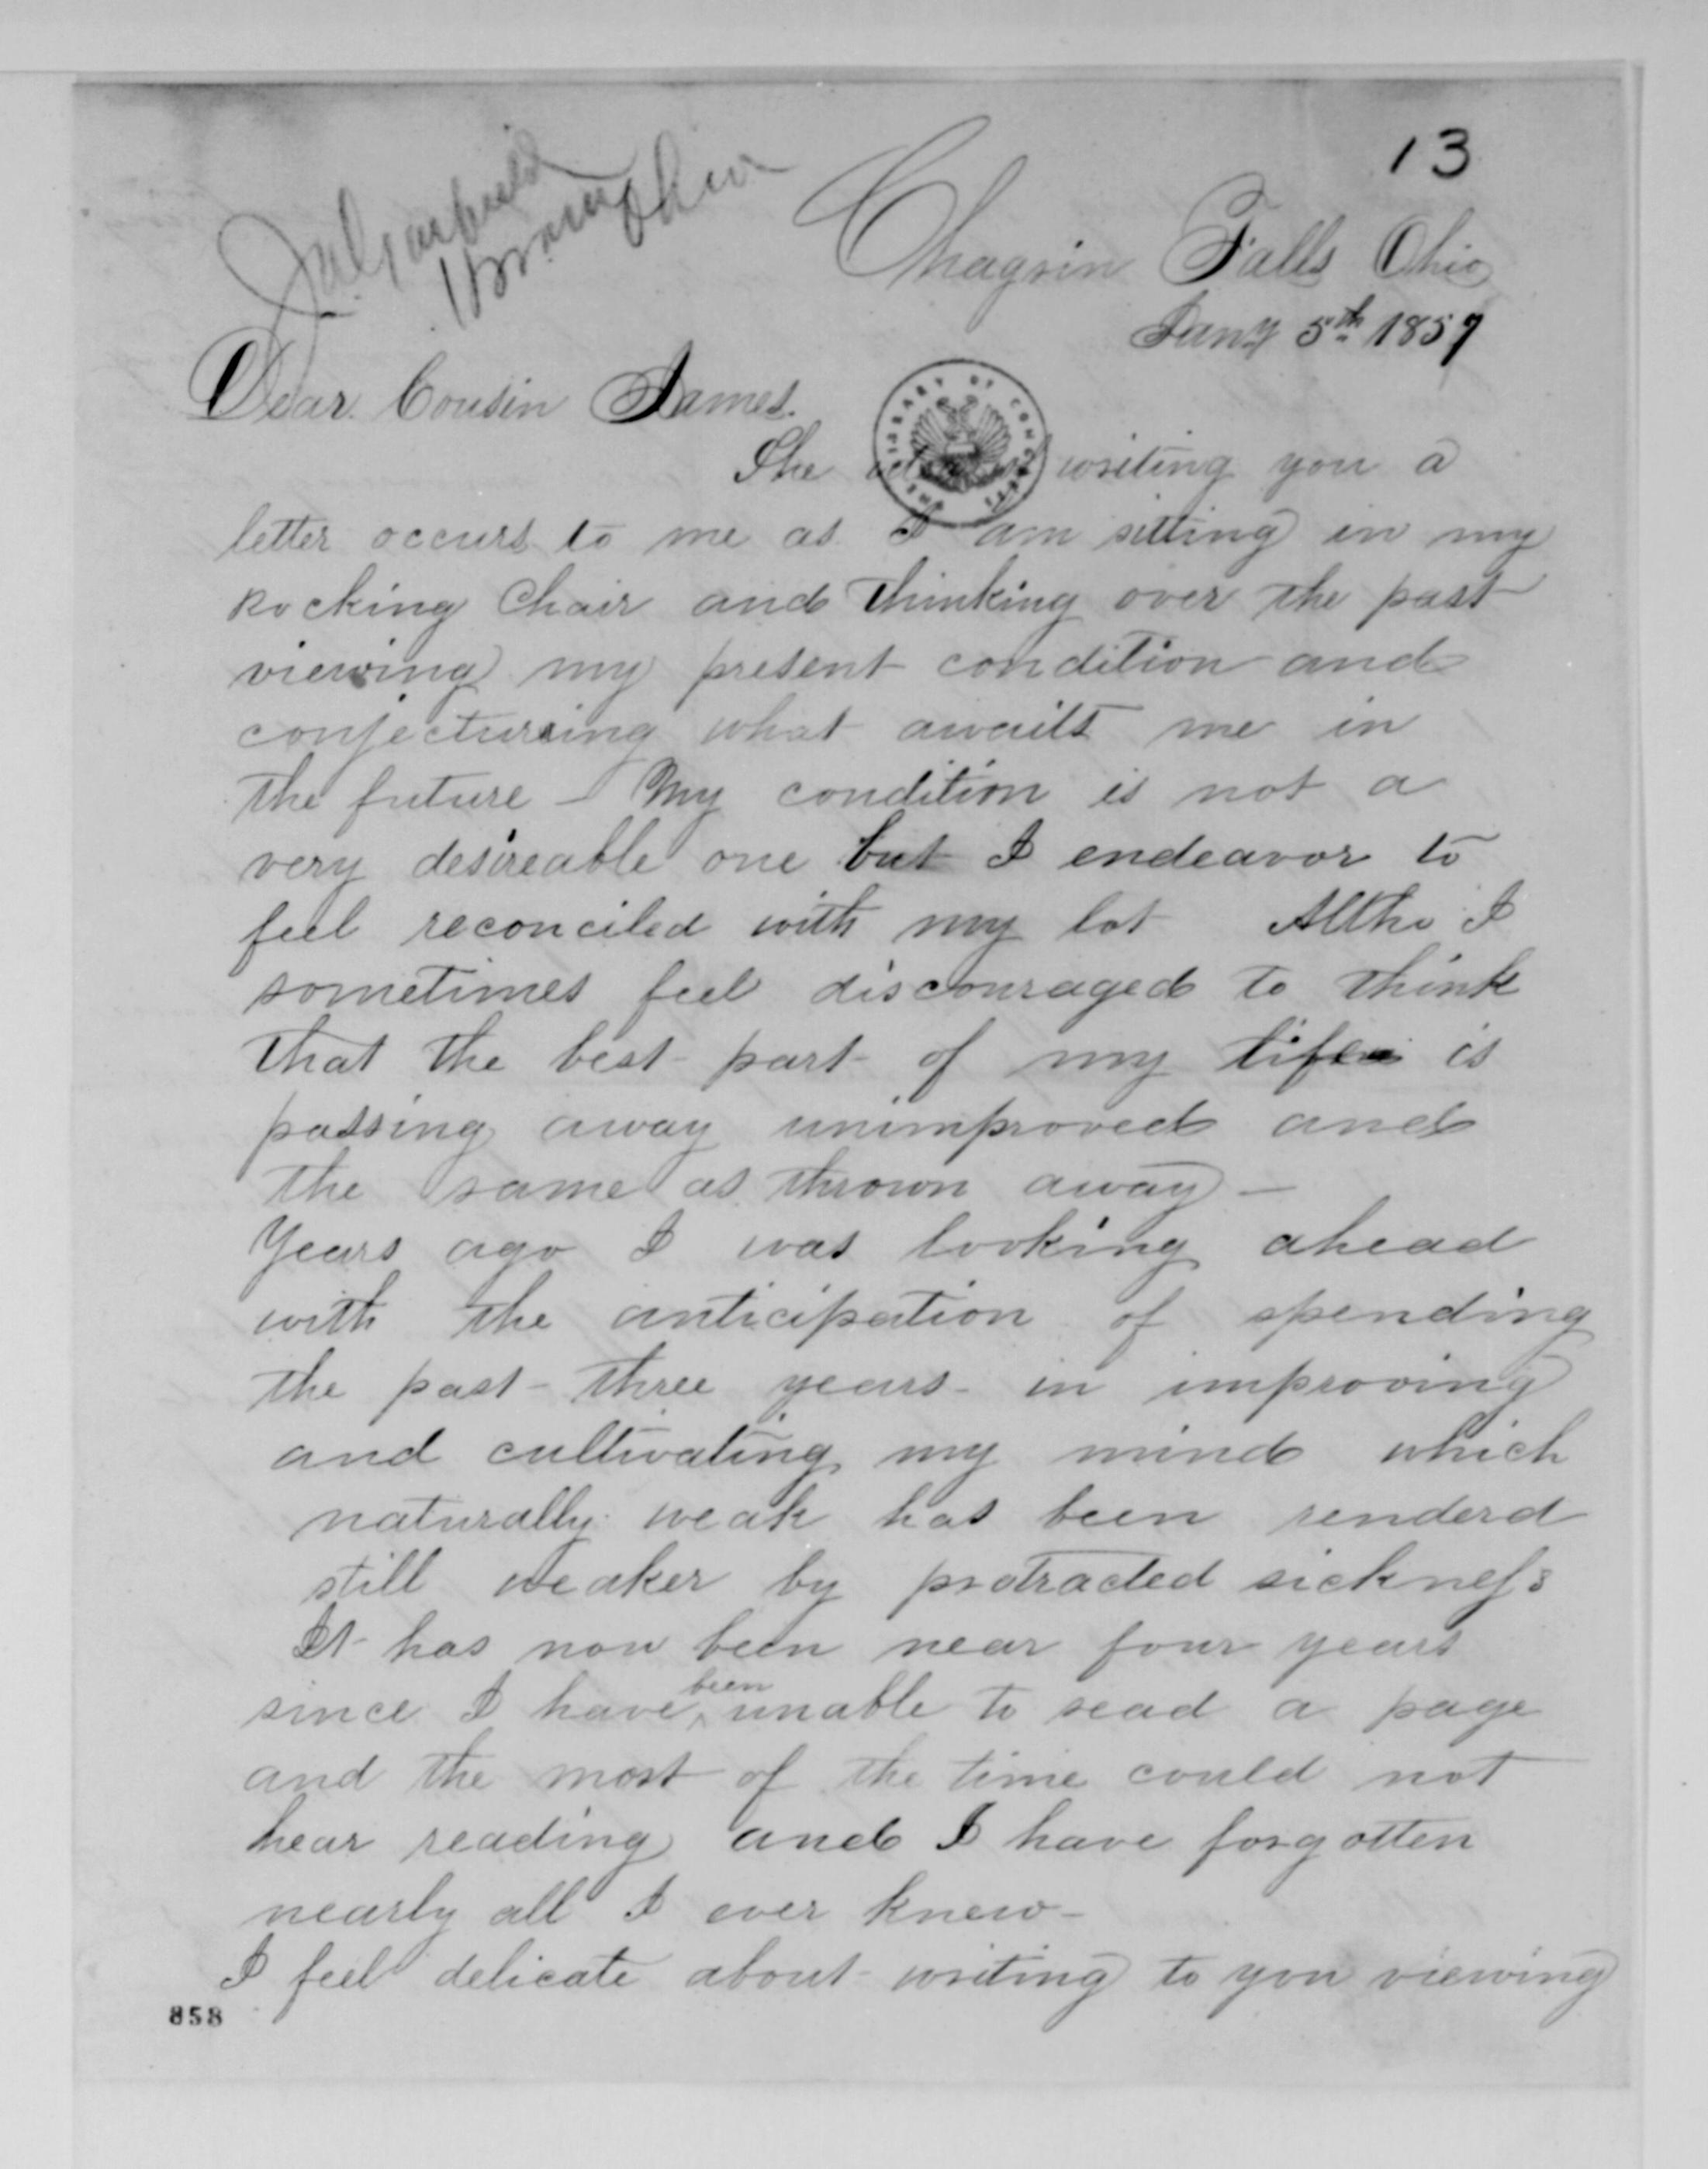 13
Chagrin Falls Ohio
Jany 5th 1857
Dear Cousin James.
The writing you a
letter occurs to me as I am sitting in my
Rocking Chair and thinking over the past
viewing my present condition and
conjecturing what awaits me in
the future – My condition is not a
very desireable one but I endeavor to
feel reconciled with my lot Altho I
sometimes feel discouraged to think
that the best part of my life is
passing away unimproved and
the same as thrown away –
Years ago I was looking ahead
with the anticipation of spending
the past three years in improving
and cultivating my mind which
naturally weak has been renderd
still weaker by protracted sickness
It has now been near four years
since I have been unable to read a page
and the most of the time could not
hear reading and I have forgotten
nearly all I ever knew –
I feel delicate about writing to you viewing
858
THE LIBRARY OF CONGRESS